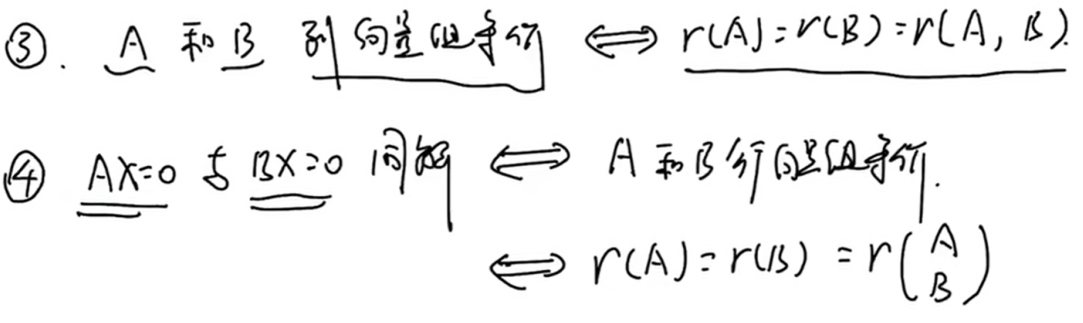 ③. A 和 B 列向量组等价 ⟺ r(A)=r(B)=r(A, B).
④ AX=0 与 BX=0 同解 ⟺ A 和 B 行向量组等价.
⟺ r(A)=r(B)=r(A B)